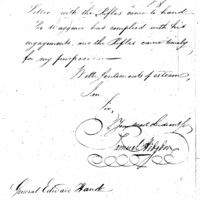 Letter with the Rifles came to hand.
Mr Waggoner has complied with his
engagements, and the Rifles came timely
for my purposes —
With sentiments of esteem
I am
Sir,
Your most Obedient St
Samuel Hodgdon
General Edward Hand